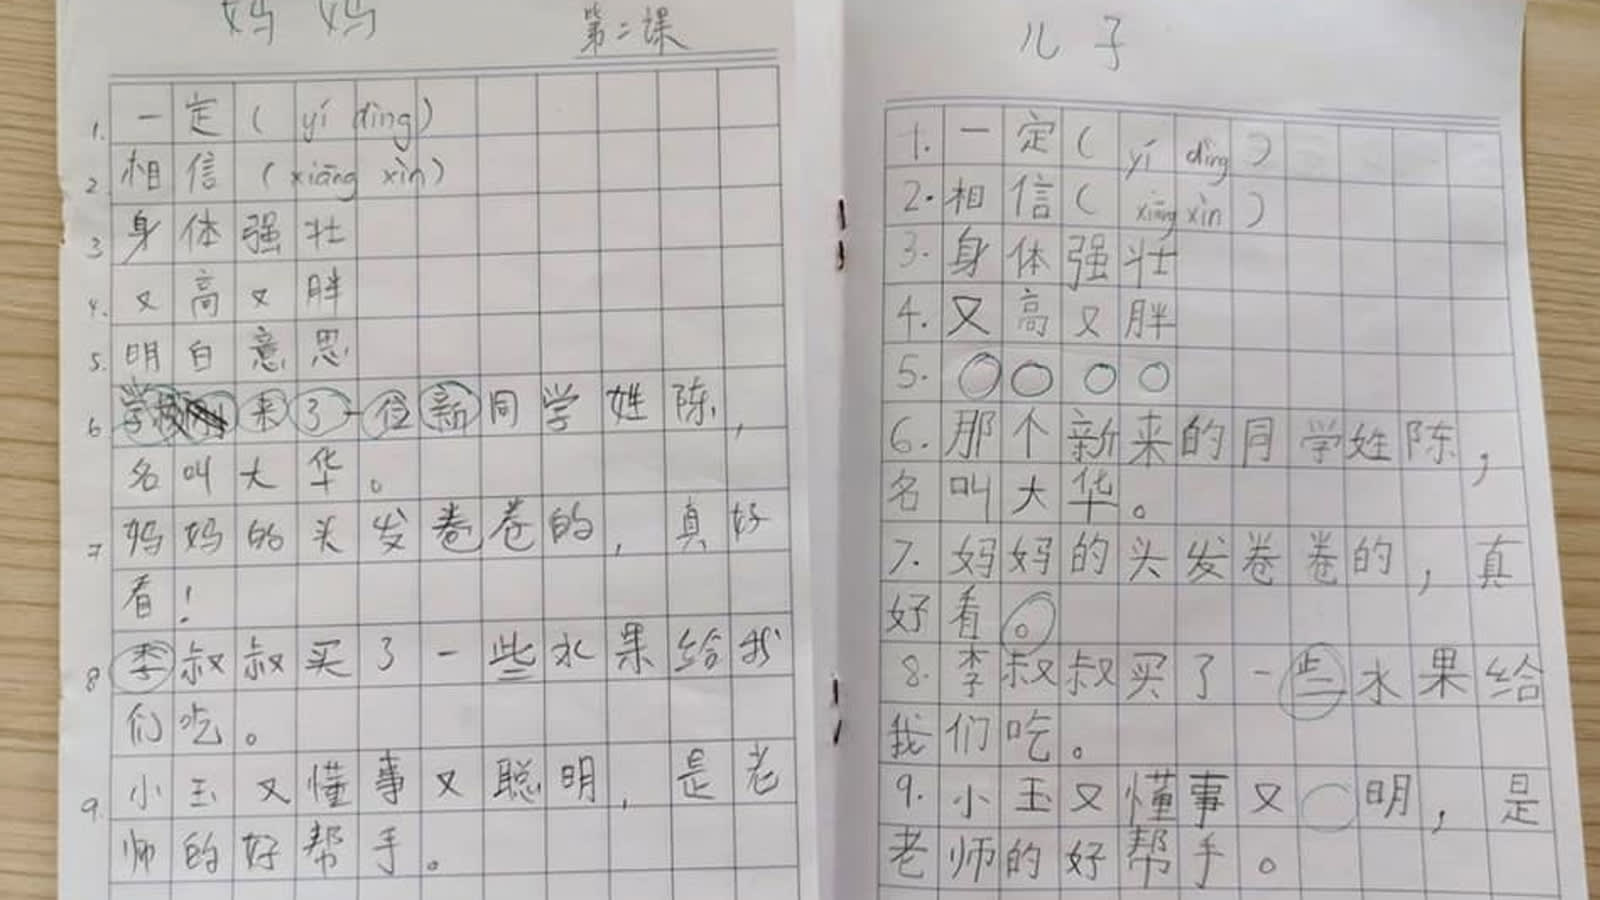 妈妈
第二课
1. 一定(yí dìng)
2. 相信(xiāng xìn)
3 身体强壮
4. 又高又胖
5. 明白意思
6 学校来了一位新同学姓陈,
名叫大华。
7 妈妈的头发卷卷的,真好
看!
8 李叔叔买了一些水果给我
们吃。
9. 小玉又懂事又聪明,是老
师的好帮手。
儿子
1. 一定(yí dìng)
2. 相信(xiāng xìn)
3. 身体强壮
4. 又高又胖
5. ○○○○
6. 那个新来的同学姓陈,
名叫大华。
7. 妈妈的头发卷卷的,真
好看。
8. 李叔叔买了一些水果给
我们吃。
9. 小玉又懂事又○明,是
老师的好帮手。